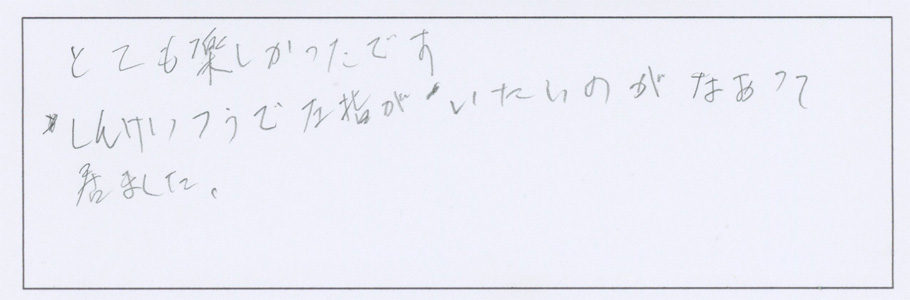 とても楽しかったです
しんけいつうで左指がいたいのがなあって
居ました。